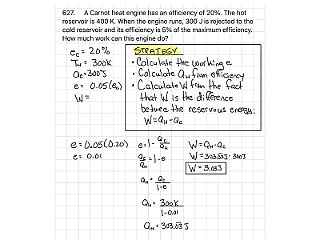 627. A Carnot heat engine has an efficiency of 20%. The hot
reservoir is 400 K. When the engine runs, 300 J is rejected to the
cold reservoir and its efficiency is 5% of the maximum efficiency.
How much work can this engine do?
ec = 20%
TH = 300K
Qc = 300J
e = 0.05(ec)
W =
STRATEGY
• Calculate the working e
• Calculate QH from efficiency
• Calculate W from the fact
that W is the difference
between the reservoirs energy:
W = QH - Qc
e = 0.05(0.20)
e = 0.01
e = 1 - Qc/QH
Qc/QH = 1 - e
QH = Qc/1-e
QH = 300K/1-0.01
QH = 303.03J
W = QH - Qc
W = 303.03J - 300J
W = 3.03J